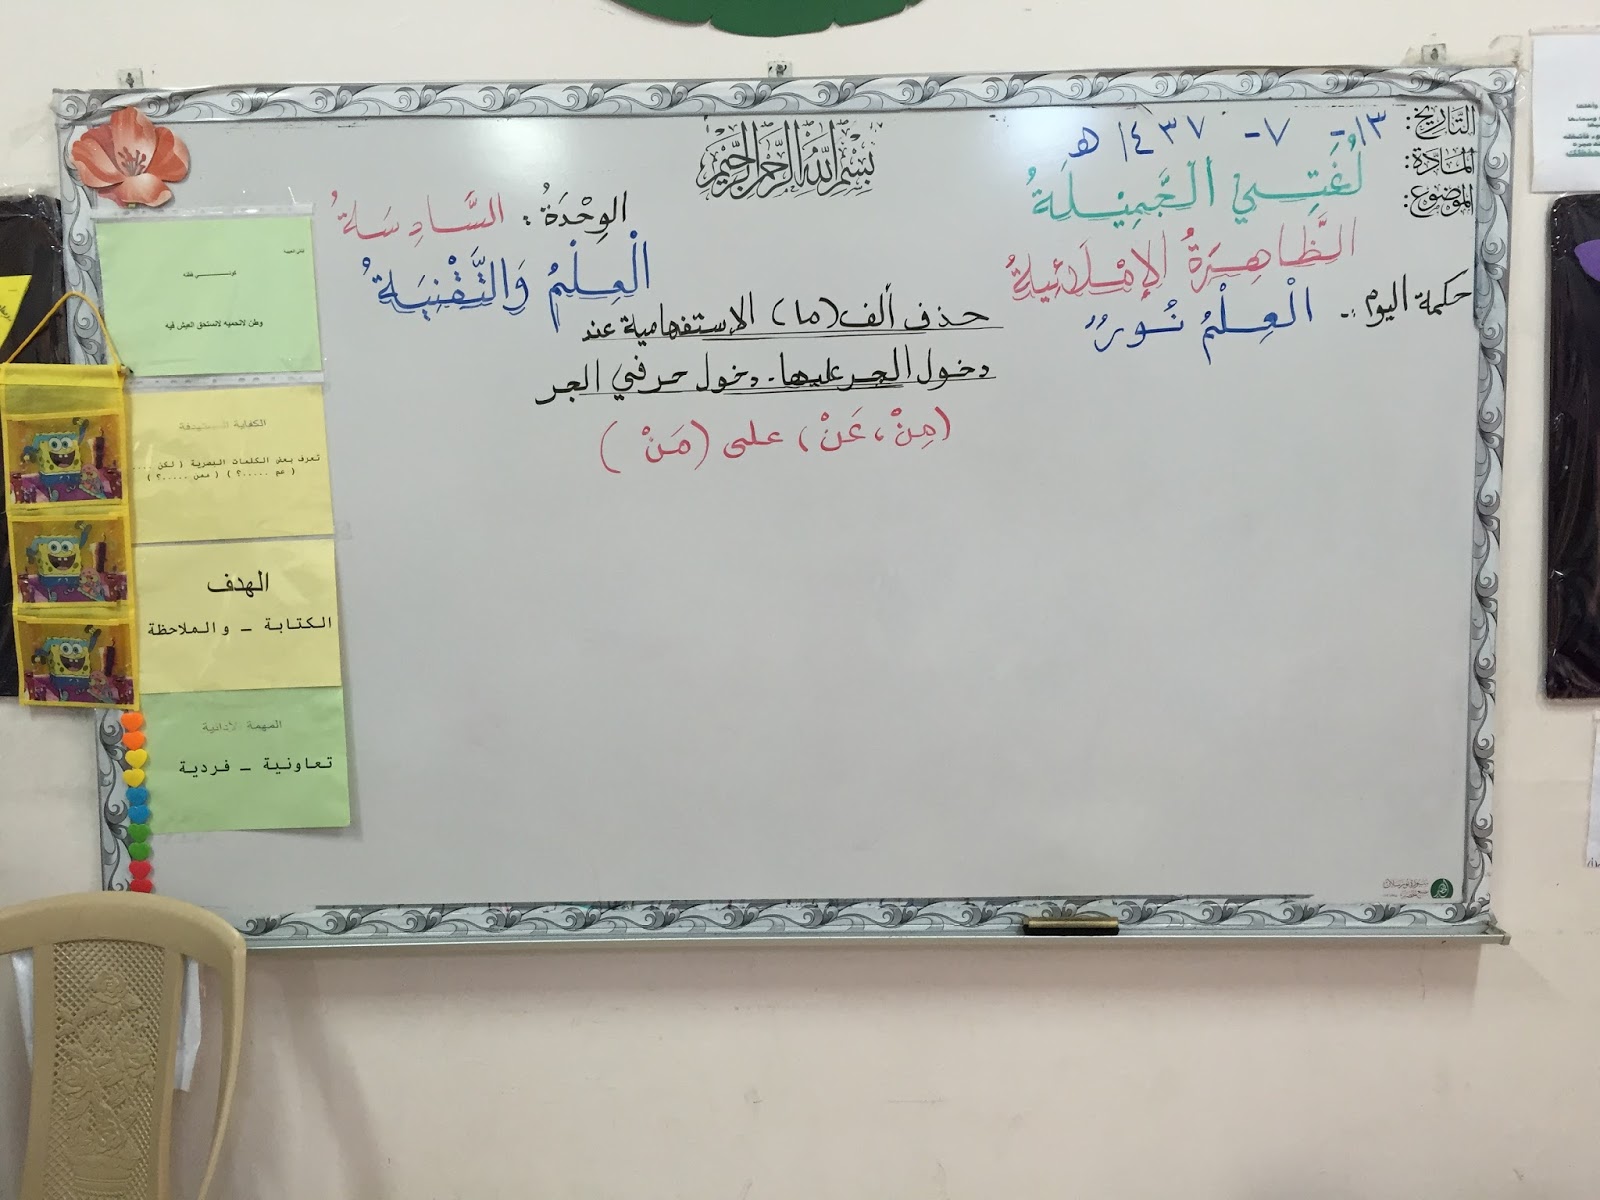 بسم الله الرحمن الرحيم
التاريخ: ١٣ - ٧ - ١٤٣٧ هـ
المادة: لُغَتِي الْجَمِيْلَةُ
الموضوع: الظَّاهِرَةُ الإِمْلَائِيَةُ
حكمة اليوم :- الْعِلْمُ نُورٌ
الوِحْدَةُ : السَّادِسَةُ
الْعِلْمُ وَالتَّقْنِيَةُ
حذف ألف (ما) الإستفهامية عند
دخول الجر عليها . دخول حرفي الجر
(مِنْ، عَنْ) على (مَنْ )
وطن لانحميه لانستحق العيش فيه
الكفاية المستهدفة
تعرف بعض الكلمات البصرية ( لكن ....
( عم .....؟ ) ( ممن .....؟ )
الهدف
الكتابة – والملاحظة
المهمة الأدائية
تعاونية – فردية